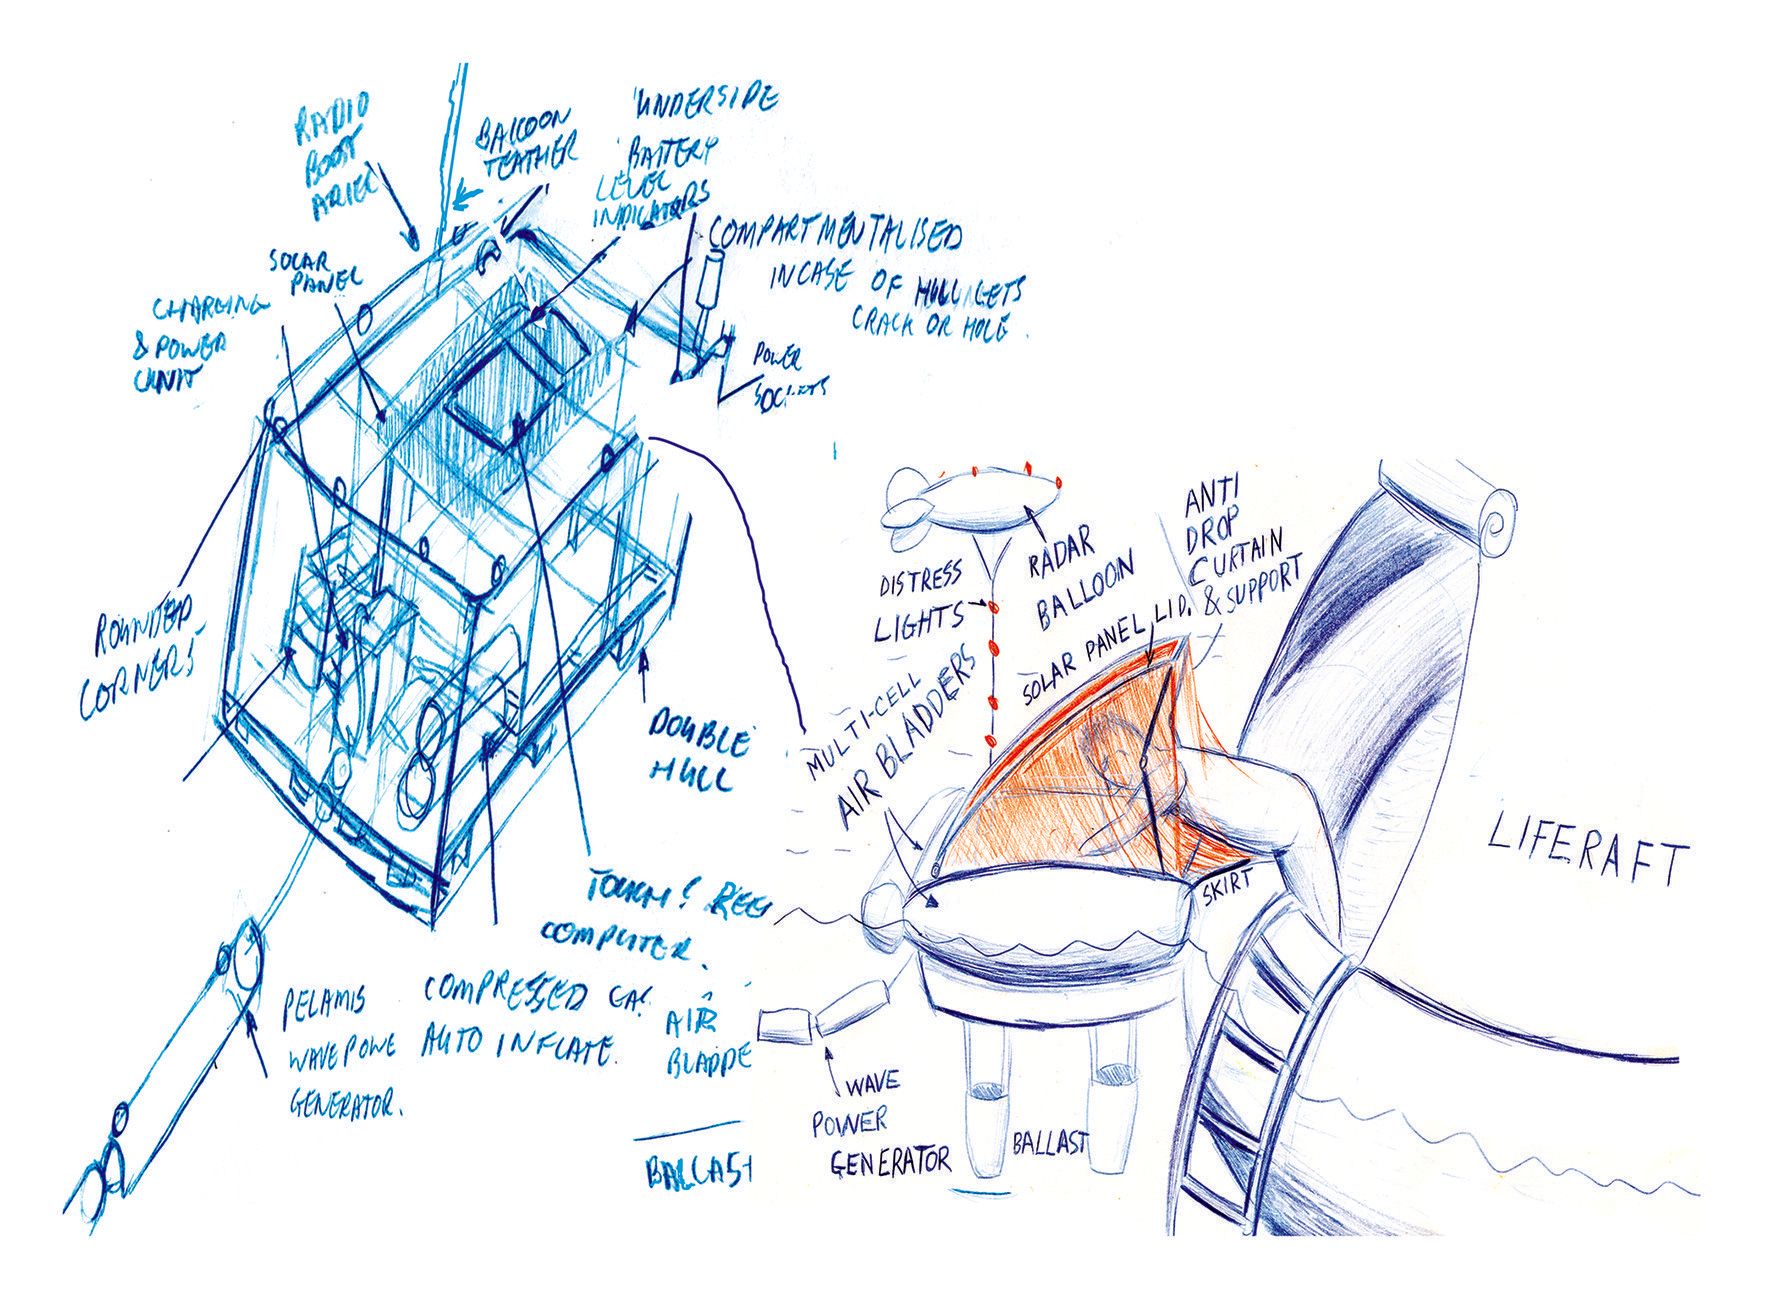 RADIO
BOOST
ARIEL
BALLOON
TEATHER
UNDERSIDE
BATTERY
LEVEL
INDICATORS
COMPARTMENTALISED
INCASE OF HULL GETS
CRACK OR HOLE.
SOLAR
PANEL
CHARGING
& POWER
UNIT
POWER
SOCKETS
ROUNDED
CORNERS
DOUBLE
HULL
COMPUTER.
PELAMIS
WAVE POWE
GENERATOR.
COMPRESSED GAS
AUTO INFLATE.
AIR
BLADDE
BALLAST
DISTRESS
LIGHTS
RADAR
BALLOON
ANTI
DROP
CURTAIN
& SUPPORT
SOLAR PANEL LID.
MULTI-CELL
AIR BLADDERS
SKIRT
LIFERAFT
WAVE
POWER
GENERATOR
BALLAST